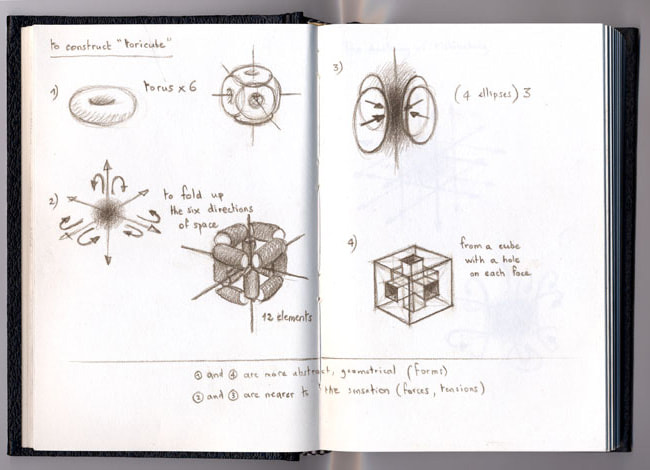 to construct "toricube"
1)
torus x 6
2)
to fold up
the six directions
of space
12 elements
3)
(4 ellipses) 3
4)
from a cube
with a hole
on each face
① and ④ are more abstract, geometrical (forms)
② and ③ are nearer to the sensation (forces, tensions)